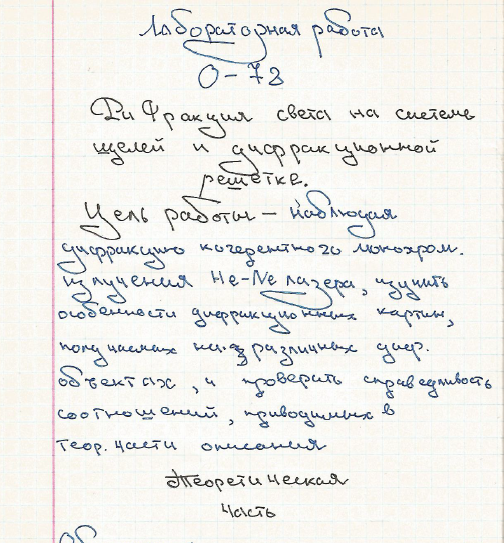 Лабораторная работа
О-73
Дифракция света на системе
щелей и дифракционной
решетке.
Цель работы – наблюдая
дифракцию когерентного монохром.
излучения He-Ne лазера, изучить
особенности дифракционных картин,
получаемых на различных диф.
объектах, и проверить справедливость
соотношений, приводимых в
теор. части описания
Теоретическая
часть